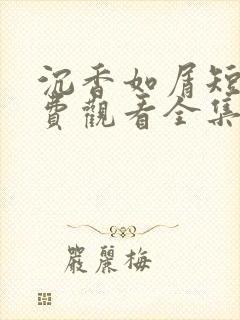 沉香如屑短
費觀看全集
嚴麗梅